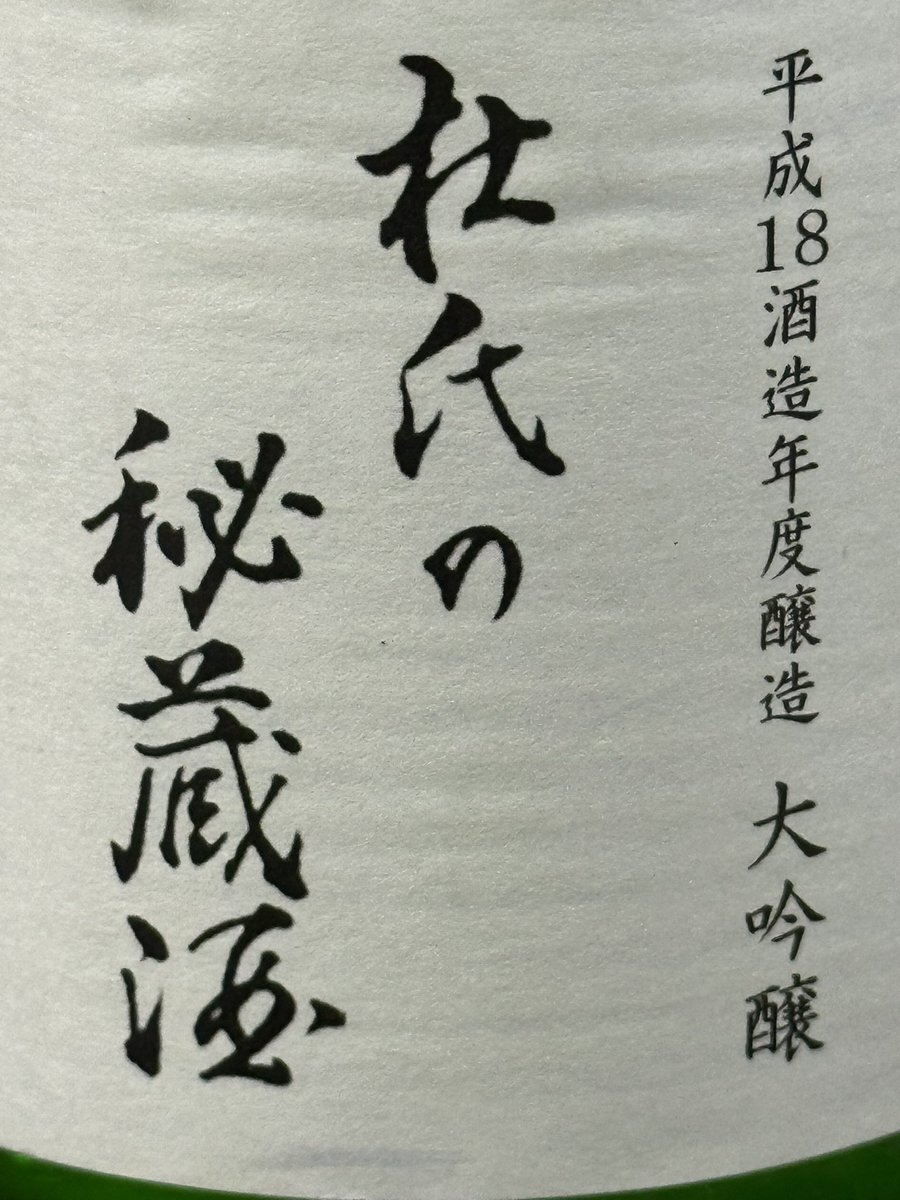 平成18酒造年度醸造 大吟醸
杜氏の
秘蔵酒